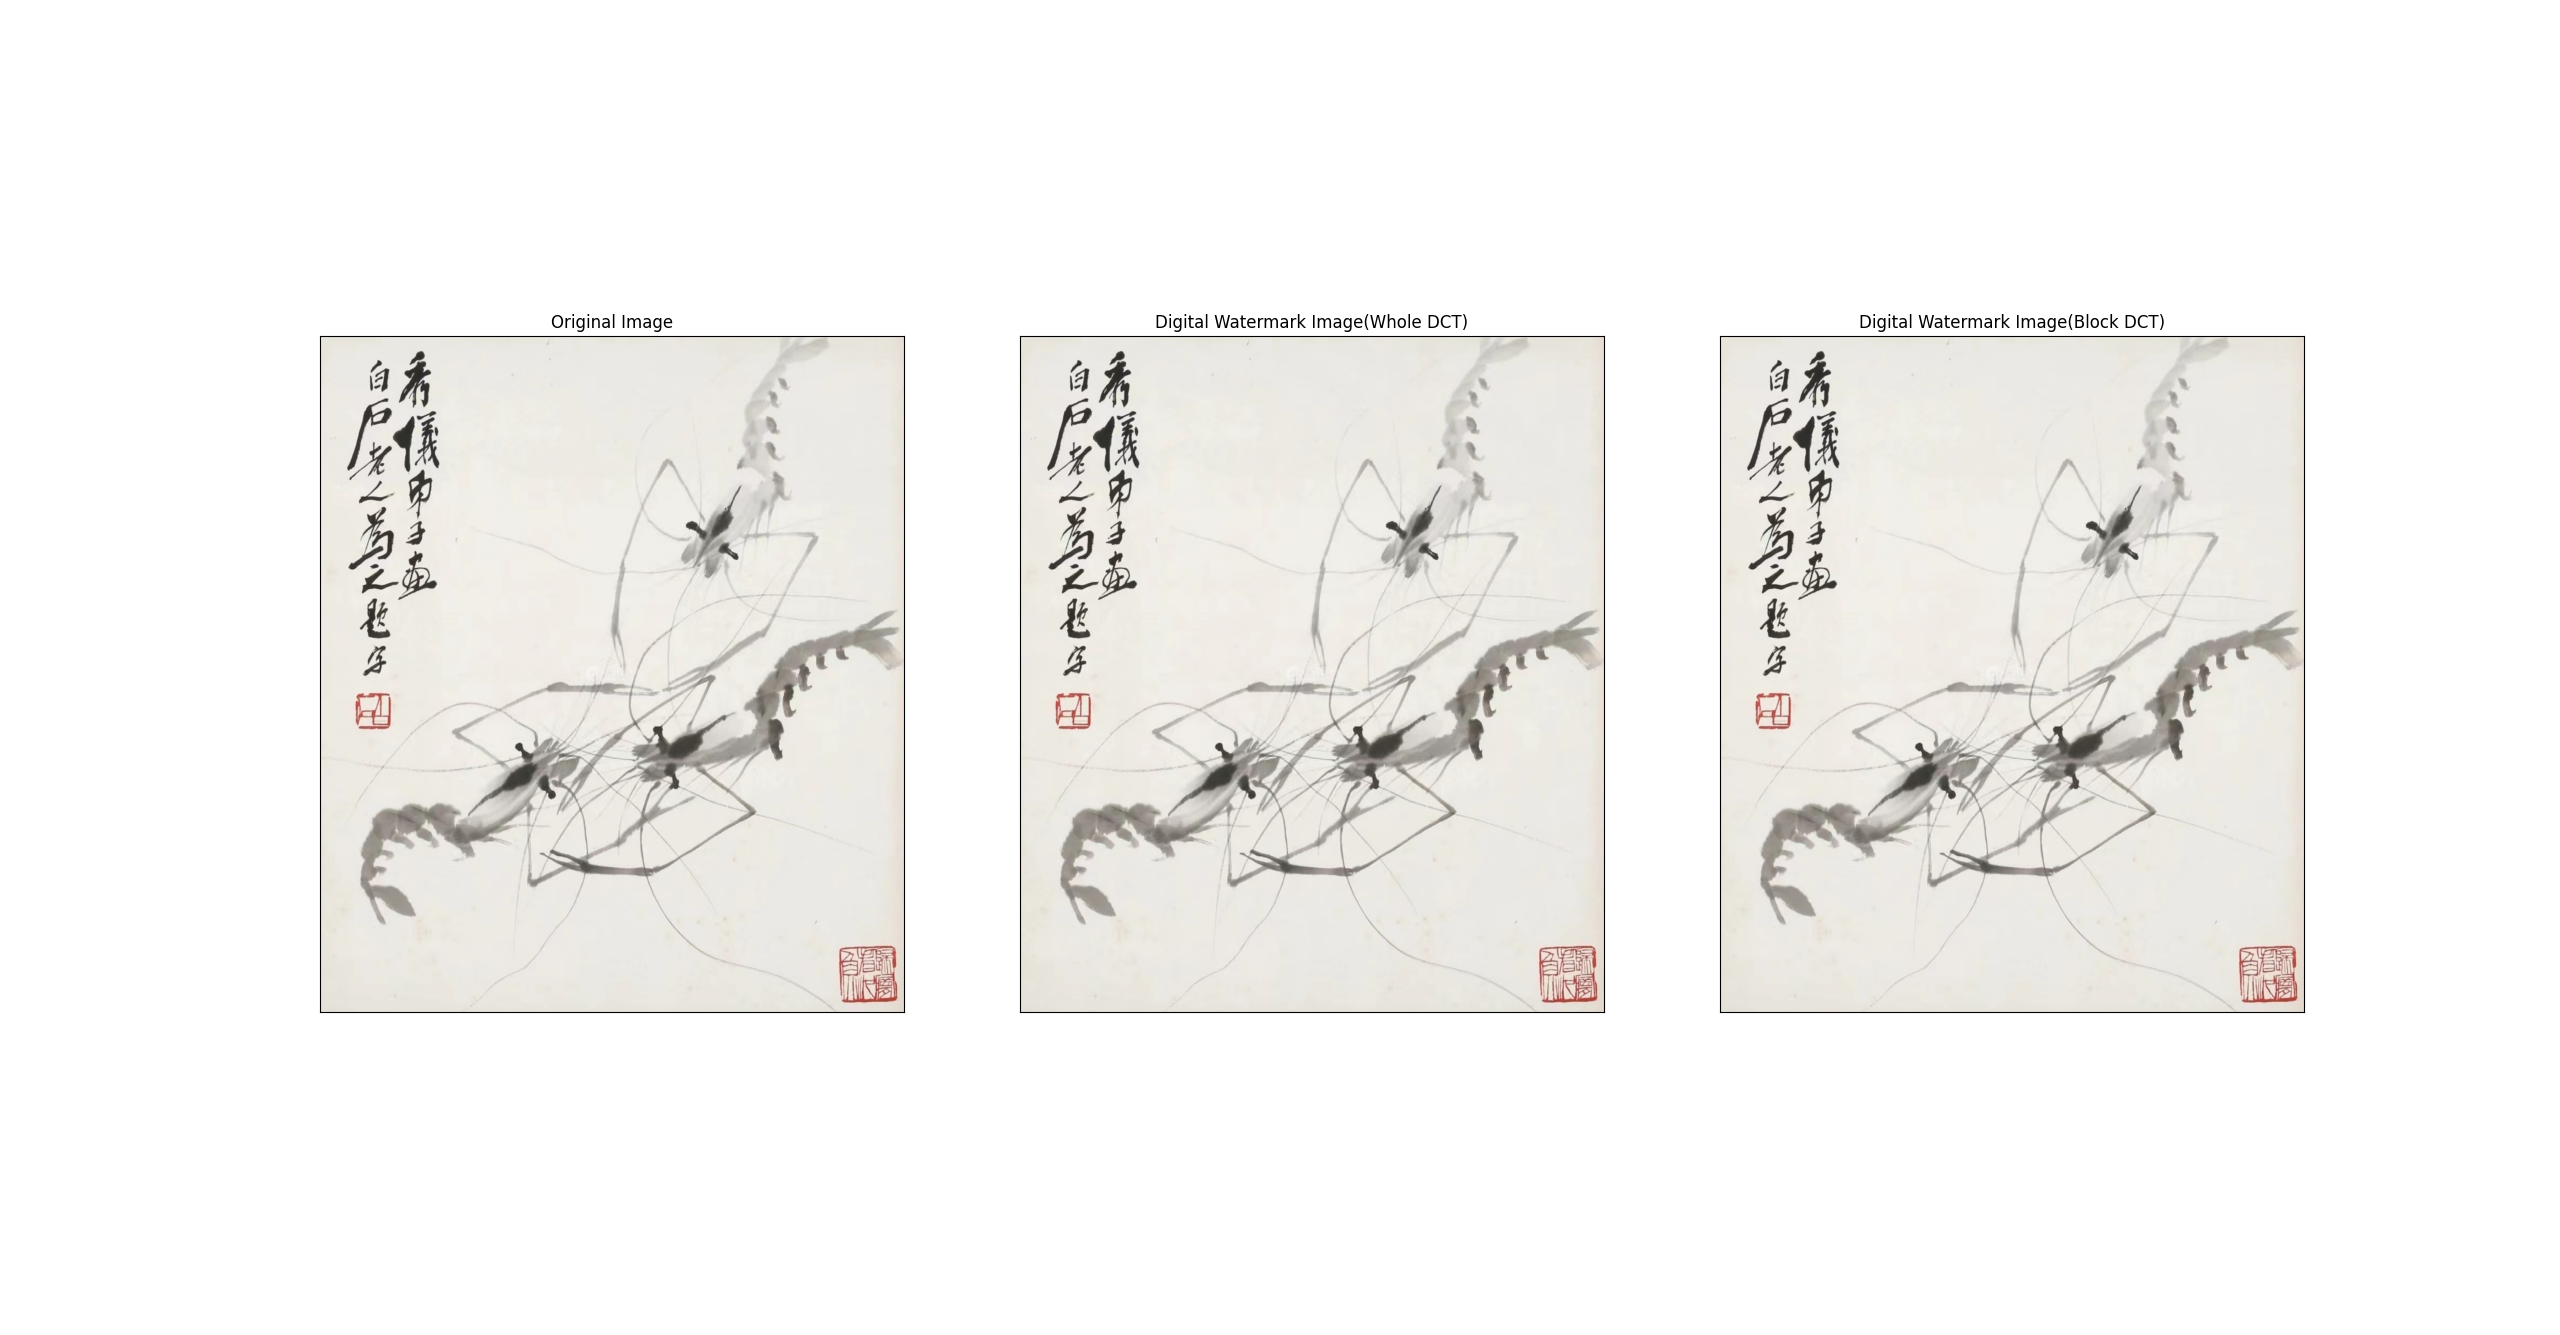 Original Image
秀儀弟子画
白石老人為之題字
Digital Watermark Image(Whole DCT)
秀儀弟子画
白石老人為之題字
Digital Watermark Image(Block DCT)
秀儀弟子画
白石老人為之題字